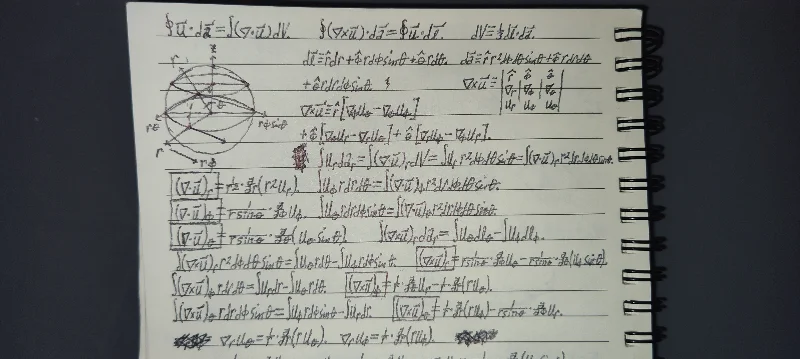 ∮u⃗·da⃗=∫(∇·u⃗)dV. ∮(∇×u⃗)·da⃗=∮u⃗·dl⃗. dV=⅓l⃗·da⃗.
dl⃗=r̂dr+φ̂rdφsinθ+θ̂rdθ. da⃗=r̂r²dφdθsinθ+φ̂rdrdθ
+θ̂rdrdφsinθ
∇×u⃗=r̂[∇φuθ-∇θuφ]
+φ̂[∇θur-∇ruθ]+θ̂[∇ruφ-∇φur].
∫urdar=∫(∇·u⃗)rdV=∫urr²dφdθsinθ=∫(∇·u⃗)rr²drdφdθsinθ.
(∇·u⃗)r=1/r²·∂/∂r(r²ur). ∫uφrdrdθ=∫(∇·u⃗)φr²drdφdθsinθ.
(∇·u⃗)φ=1/rsinθ·∂/∂φuφ. ∫uθrdrdφsinθ=∫(∇·u⃗)θr²drdφdθsinθ.
(∇·u⃗)θ=1/rsinθ·∂/∂θ(uθsinθ). ∫(∇×u⃗)rdar=∫uθdlθ-∫uφdlφ.
∫(∇×u⃗)rr²dφdθsinθ=∫uθrdθ-∫uφrdφsinθ. (∇×u⃗)r=1/rsinθ·∂/∂φuθ-1/rsinθ·∂/∂θ(uφsinθ).
∫(∇×u⃗)φrdrdθ=∫urdr-∫uθrdθ. (∇×u⃗)φ=1/r·∂/∂θur-1/r·∂/∂r(ruθ).
∫(∇×u⃗)θrdrdφsinθ=∫uφrdφsinθ-∫urdr. (∇×u⃗)θ=1/r·∂/∂r(ruφ)-1/rsinθ·∂/∂φur.
∇ruθ=1/r·∂/∂r(ruθ). ∇ruφ=1/r·∂/∂r(ruφ).